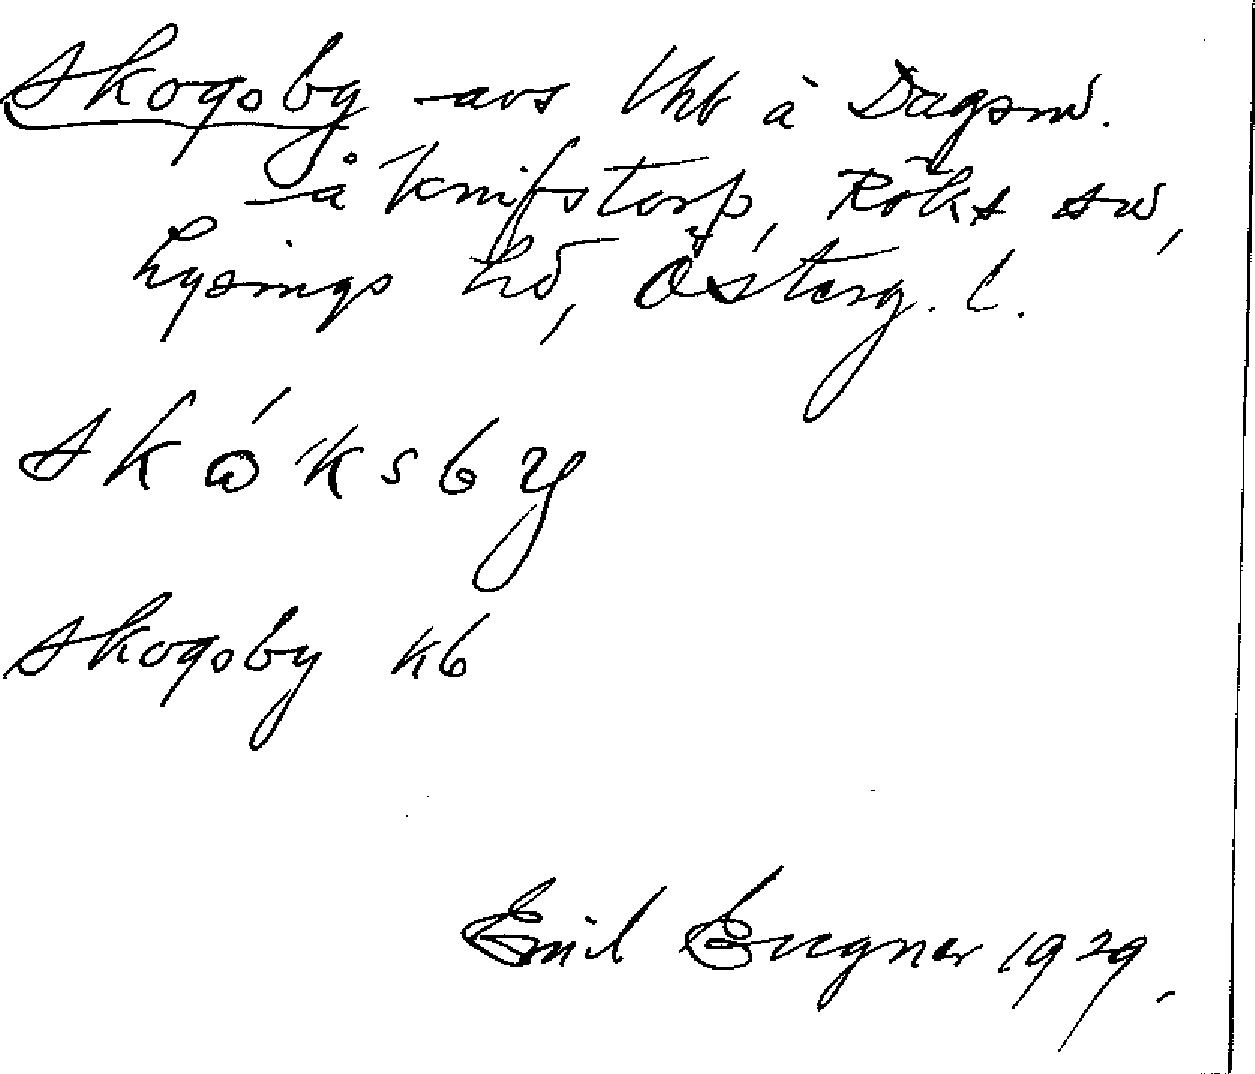 Skogsby -avs lhb å Dagsm.
å Knifstorp, Röks sn,
Lysings hd, Österg. l.
skóksby
Skogsby kb
Emil Eugner 1929.